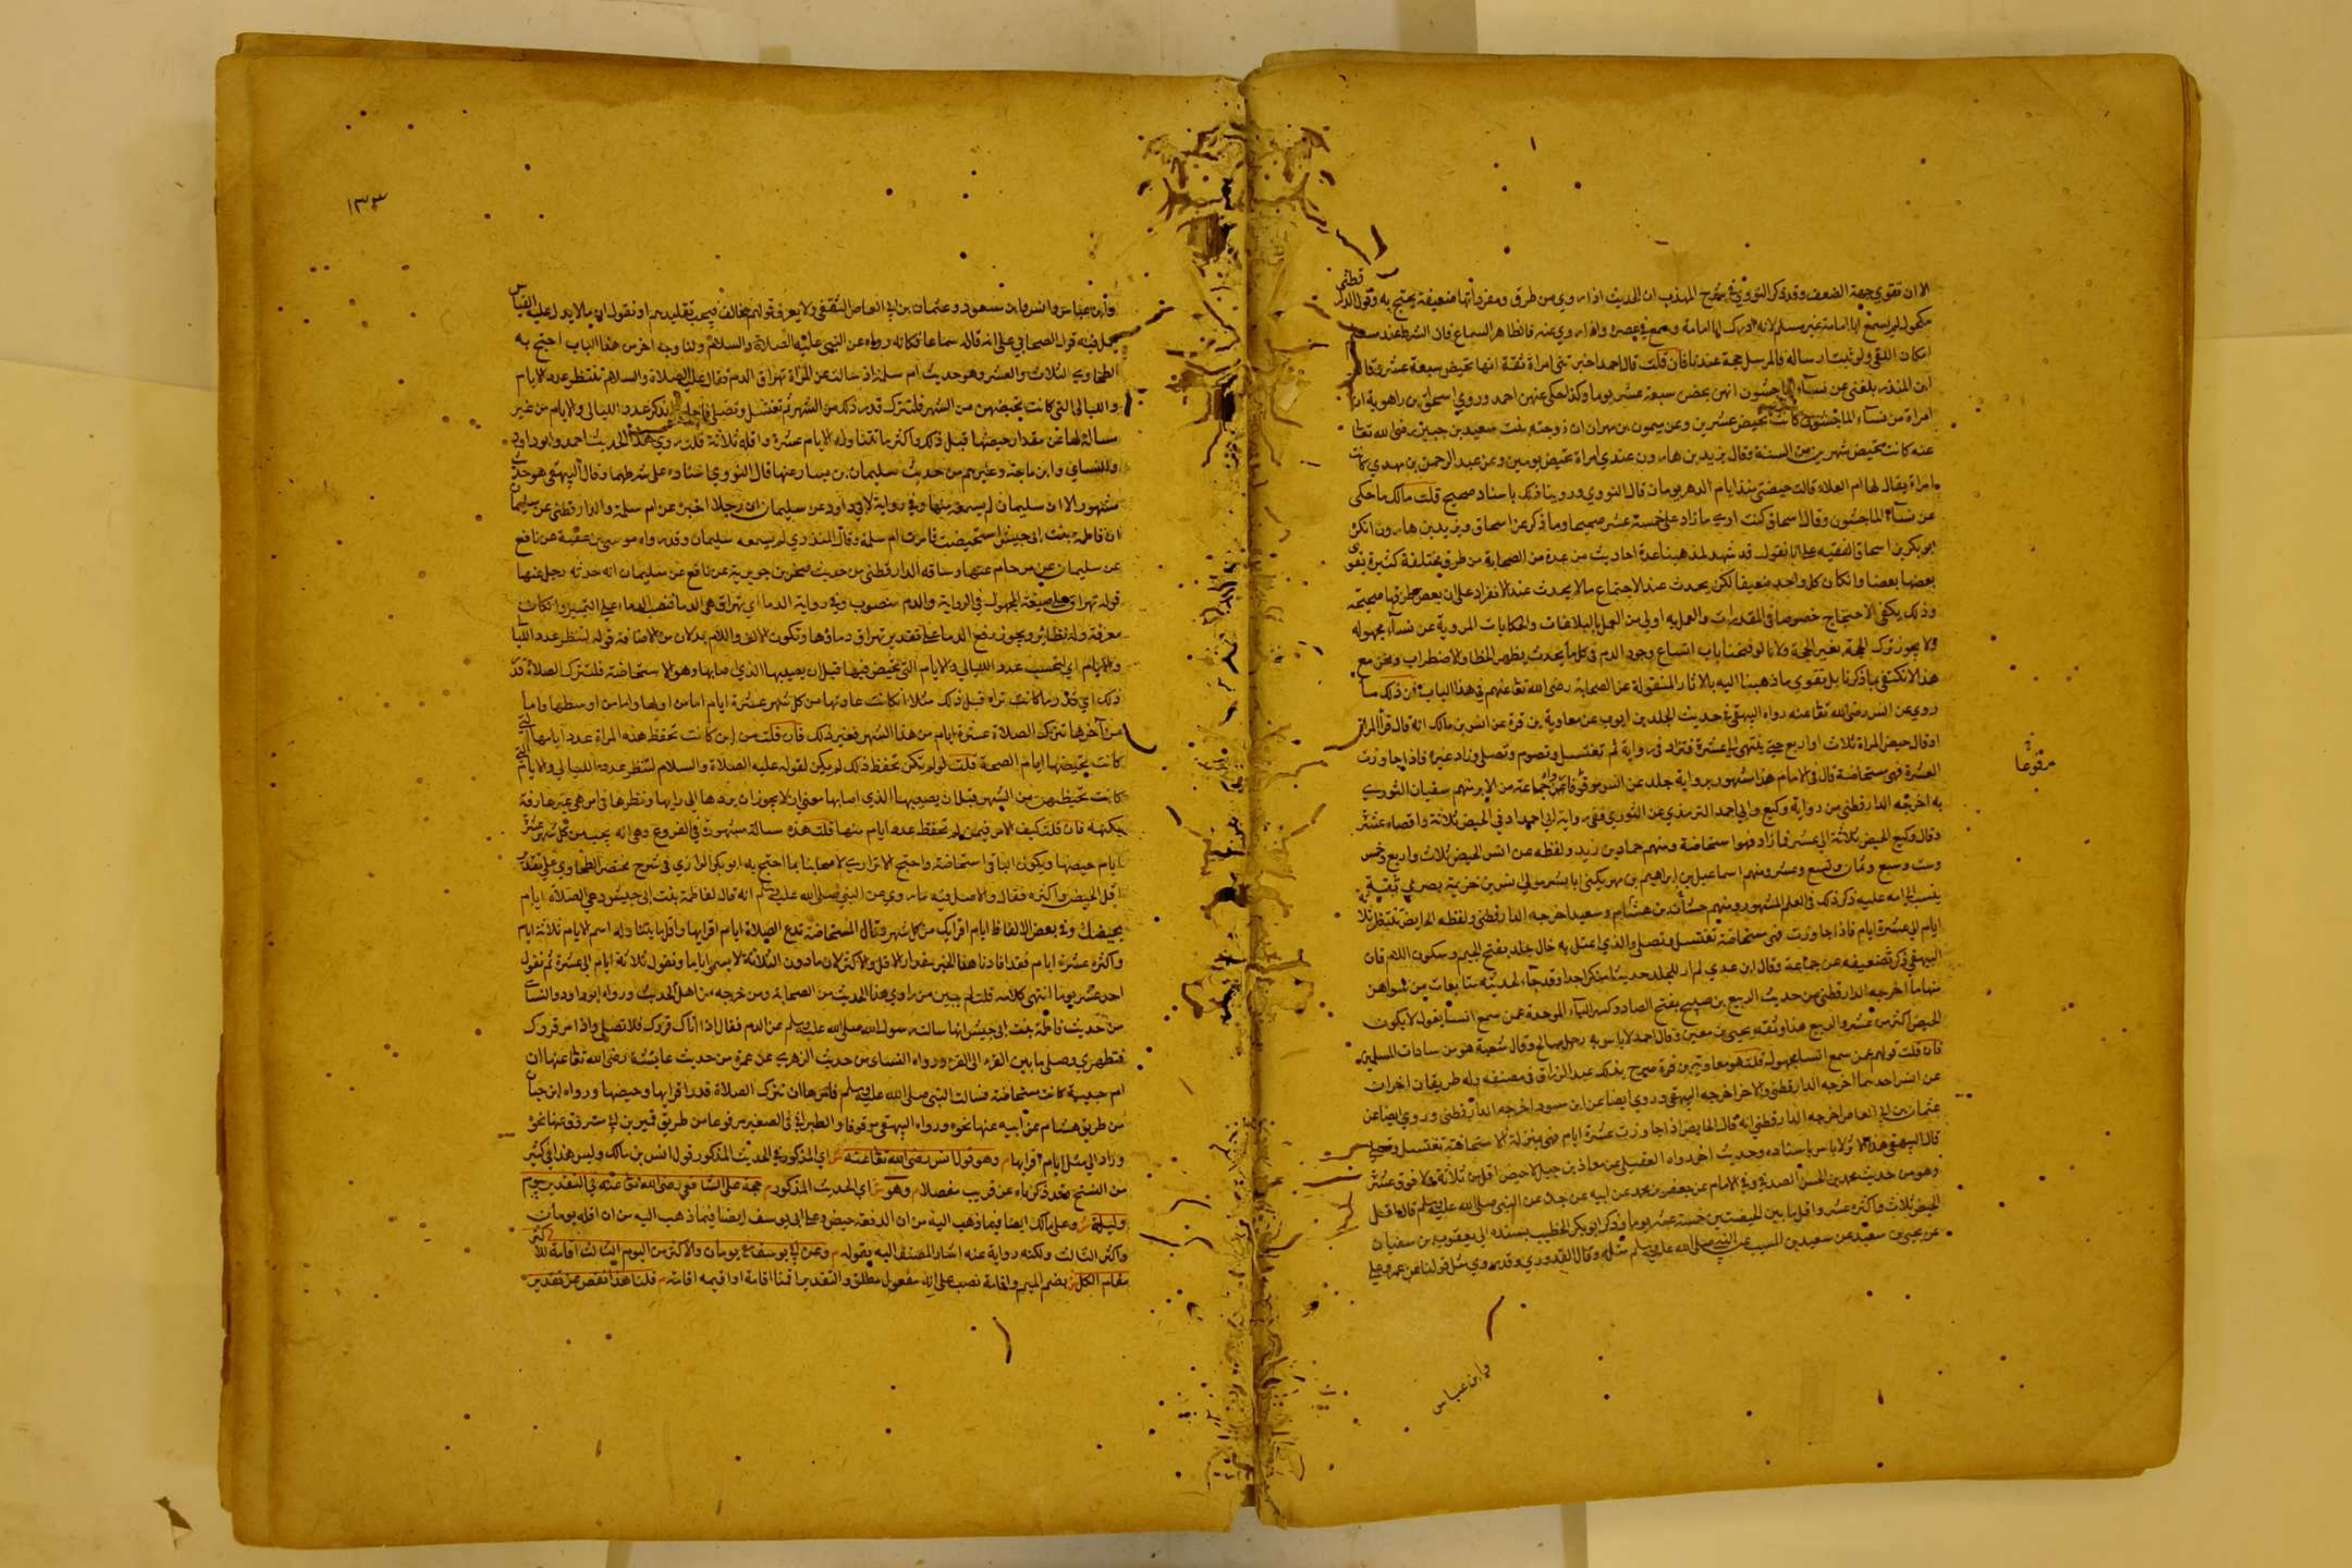 الا ان تقوي جهة الضعف وقد ذكر النووي في شرح المهذب ان الحديث اذا روي من طرق ومفرداتها ضعيفة يحتج به وقول الدار قطني
مكحول لم يسمع ابا امامة غير مسلم لانه ادرك ابا امامة وسمع في عصره واذا روي عنه فالظاهر السماع فان الشرط عند مسلم
امكان اللقي ولو ثبت ارساله والمرسل حجة عندنا فان قلت قال احمد اخبرتني امراة ثقة انها تحيض سبعة عشر وقال
ابن المنذر بلغني عن نساء الماجشون انهن يحضن سبعة عشر يوما وكذا حكي عنهن احمد وروي اسحاق بن راهوية ان
امراة من نساء الماجشون كانت تحيض عشرين وعن ميمون بن مهران ان زوجته بنت سعيد بن جبير رضي الله تعالى
عنه كانت تحيض شهرين من السنة وقال يزيد بن هارون عندي امراة تحيض يومين وعن عبد الرحمن بن مهدي كانت
امراة يقال لها ام العلاء قالت حيضتي منذ ايام الدهر يومان قال النووي وروينا ذلك باسناد صحيح قلت مالك ما حكى
عن نساء الماجشون وقال اسحاق كنت اري ما زاد على خمسة عشر صحيحا وما ذكر عن اسحاق ويزيد بن هارون انكره
ابو بكر بن اسحاق الفقيه على انا نقول قد شهد لمذهبنا عدة احاديث من عدة من الصحابة من طرق مختلفة كثيرة يقوي
بعضها بعضا وان كان كل واحد ضعيفا لكن يحدث عند الاجتماع ما لا يحدث عند الانفراد على ان بعض طرقها صحيحة
وذلك يكفي الاحتجاج خصوصا في المقدرات والعمل به اولي من العمل بالبلاغات والحكايات المروية عن نساء مجهولة
ولا يجوز ترك الحجة بغير الحجة ولانا لو فتحنا باب اتباع وجود الدم في كل ما يحدث يظهر الخطا والاضطراب ونحن مع
هذا لا نكتفي بما ذكرنا بل نقوي ما ذهبنا اليه بالاثار المنقولة عن الصحابة رضي الله تعالى عنهم في هذا الباب فمن ذلك ما
روي عن انس رضي الله تعالى عنه رواه البيهقي في حديث الجلد بن ايوب عن معاوية بن قرة عن انس بن مالك انه قال قرأ المراة
او قال حيض المراة ثلاث او اربع حتي ينتهي الى عشرة فتزاد في رواية ثم تغتسل وتصوم وتصلي وزاد غيره فاذا جاوزت
العشرة فهي مستحاضة قال في الامام هذا مشهور برواية جلد عن انس موقوفا جماعة من الاير منهم سفيان الثوري
به اخرجه الدارقطني من رواية وكيع وابي احمد الترمذي عن الثوري ففي رواية ابي احمد ادني الحيض ثلاثة واقصاه عشرة
وقال وكيع الحيض ثلاثة الى عشر فما زاد فهو استحاضة ومنهم حماد بن زيد ولفظه عن انس الحيض ثلاث واربع وخمس
وست وسبع وثمان وتسع وعشر ومنهم اسماعيل بن ابراهيم
ايام الى عشرة ايام فاذا جاوزت فهي مستحاضة تغتسل وتصلي والذي اعتل به خال جلد بفتح الجيم وسكون اللام فان
البيهقي ذكر تضعيفه عن جماعة وقال ابن عدي لم ار للجلد حديثا منكرا جدا وقد جاء لحديثه متابعات من شواهد
منها ما اخرجه الدارقطني من حديث الربيع بن صبيح بفتح الصاد وكسر الباء الموحدة عمن سمع انسا يقول لا يكون
الحيض اكثر من عشر والربيع هذا وثقه يحيى بن معين وقال احمد لا باس به رجل صالح وقال شعبة هو من سادات المسلمين
فان قلت قولهم عمن سمع انسا مجهول قلت هو معاوية بن قرة صرح بذلك عبد الرزاق في مصنفه وله طريقان اخران
عن انس احدهما اخرجه الدارقطني والاخر اخرجه البيهقي وروي ايضا عن ابن مسعود اخرجه الدارقطني وروي ايضا عن
عثمان بن ابي العاص اخرجه الدارقطني انه قال الحايض اذا جاوزت عشرة ايام فهي بمنزلة المستحاضة تغتسل وتصلي
قال البيهقي هذا الاثر لا باس باسناده وحديث اخر رواه العقيلي عن معاذ بن جبل لا حيض اقل من ثلاثة ولا فوق عشرة
وهو من حديث محمد بن الحسن الصدفي وفي الامام عن جعفر بن محمد عن ابيه عن جده عن النبي صلى الله عليه وسلم قال اقل
الحيض ثلاث واكثره عشر واقل ما بين الحيضتين خمسة عشر يوما وذكر ابو بكر الخطيب بسنده الى يعقوب بن سفيان
عن يحيى بن سعيد عن سعيد بن المسيب عن النبي صلى الله عليه وسلم مثله وقال القدوري وقد روي مثل قولنا عن عمر وعلي
مرفوعا
وابن عباس
١٣٣
وابن عباس وانس وابن مسعود وعثمان بن ابي العاص الثقفي ولا يعرف قولهم مخالف فيجب تقليدهم او نقول ان ما لا يدل عليه القياس
يحمل فيه قول الصحابي على انه قاله سماعا فكانه رواه عن النبي عليه الصلاة والسلام ولنا وجه اخر من هذا الباب احتج به
الطحاوي الثلاث والعشر وهو حديث ام سلمة اذ سالت عن المراة تهراق الدم فقال عليه الصلاة والسلام تنتظر عدد الايام
والليالي التي كانت تحيضهن من الشهر فلتترك قدر ذلك من الشهر ثم تغتسل وتصلي فاجابها بذكر عدد الليالي والايام من غير
مسالة لها عن مقدار حيضها قبل ذلك واكثر ما تتناوله الايام عشرة واقله ثلاثة قلت روي هذا الحديث احمد وابو داود
والنساي وابن ماجة وغيرهم من حديث سليمان بن يسار عنها قال النووي اسناده على شرطهما وقال البيهقي هو حديث
مشهور الا ان سليمان لم يسمعه منها وفي رواية لابي داود عن سليمان ان رجلا اخبره عن ام سلمة والدارقطني عن سليمان
ان فاطمة بنت ابي حبيش استحيضت فامرت ام سلمة وقال المنذري لم يسمعه سليمان وقد رواه موسى بن عقبة عن نافع
عن سليمان عن مرجانة عنها وساقه الدارقطني من حديث صخر بن جويرية عن نافع عن سليمان انه حدثه رجل عنها
قوله تهراق على صيغة المجهول في الرواية والدم منصوب وفي رواية الدما اي تهراق هي الدما فنصب الدماء على التمييز وان كانت
معرفة وله نظائر ويجوز رفع الدما على تقدير تهراق دماؤها وتكون الالف واللام بدلا من الاضافة قوله لتنظر عدد الليالي
والايام اي لتحسب عدد الليالي والايام التي تحيض فيها قبل ان يصيبها الذي اصابها وهو الاستحاضة فلتترك الصلاة قدر
ذلك اي قدر ما كانت تراه قبل ذلك مثلا ان كانت عادتها من كل شهر عشرة ايام اما من اولها واما من اوسطها واما
من آخرها تترك الصلاة عشرة ايام من هذا الشهر فغير ذلك فان قلت من اين كانت تحفظ هذه المراة عدد ايامها التي
كانت تحيضها ايام الصحة قلت لو لم تكن تحفظ ذلك لم يكن لقوله عليه الصلاة والسلام لتنظر عدة الليالي والايام التي
كانت تحيظهن من الشهر قبل ان يصيبها الذي اصابها معني اذ لا يجوز ان يردها الى رايها ونظرها في امر هي غير عارفة
بكنهه فان قلت كيف الامر فيمن لم تحفظ عدد ايام منها قلت هذه مسالة مشهورة في الفروع وهي انه يحسب من كل شهر عشرة
ايام حيضها ويكون الباقي استحاضة واحتج الاترازي لاصحابنا بما احتج به ابو بكر الرازي في شرح مختصر الطحاوي على تقدير
اقل الحيض واكثره فقال والاصل فيه ما روي عن النبي صلى الله عليه وسلم انه قال لفاطمة بنت ابي حبيش دعي الصلاة ايام
محيضك وفي بعض الالفاظ ايام اقرايك من كل شهر وقال المستحاضة تدع الصلاة ايام اقرايها واقل ما يتناوله اسم الايام ثلاثة ايام
واكثره عشرة ايام فقد افادنا هذا الخبر مقدار الاقل والاكثر لان ما دون الثلاثة لا يسمى اياما وتقول ثلاثة ايام الى عشرة ثم تقول
احد عشر يوما انتهى كلامه قلت لم يبين من راوي هذا الحديث من الصحابة ومن خرجه من اهل الحديث ورواه ابو داود والنساي
من حديث فاطمة بنت ابي حبيش انها سالت رسول الله صلى الله عليه وسلم عن الدم فقال اذا اتاك قروك فلا تصلي واذا مر قروك
فتطهري وصلي ما بين القرء الى القرء ورواه النساي من حديث الزهري عن عمرة من حديث عايشة رضي الله تعالى عنها ان
ام حبيبة كانت مستحاضة فسالت النبي صلى الله عليه وسلم فامرها ان تترك الصلاة قدر اقرايها وحيضها ورواه ابن حبان
من طريق هشام عن ابيه عنها نحوه ورواه البيهقي موقوفا والطبراني في الصغير مرفوعا من طريق قمير عن مسروق عنها نحوه
وزاد الى مثل ايام اقرايها م وهو قول انس رضي الله تعالى عنه ش اي المذكور في الحديث المذكور قول انس بن مالك وليس هذا في كثير
من النسخ وقد ذكرناه عن قريب مفصلا م وهو ش اي الحديث المذكور م حجة على الشافعي رضي الله تعالى عنه في التقدير بيوم
وليلة ش وعلى مالك ايضا فيما ذهب اليه من ان الدفعة حيض وعلى ابي يوسف ايضا فيما ذهب اليه من ان اقله يومان
واكثر الثالث ولكنه رواية عنه اشار المصنف اليه بقوله م وعن ابي يوسف يومان والاكثر من اليوم الثالث اقامة للاكثر
مقام الكل ش بضم الميم واقامة نصب على انه مفعول مطلق والتقدير اقمنا اقامة او اقيمه اقامة م قلنا هذا نقص عن تقدير